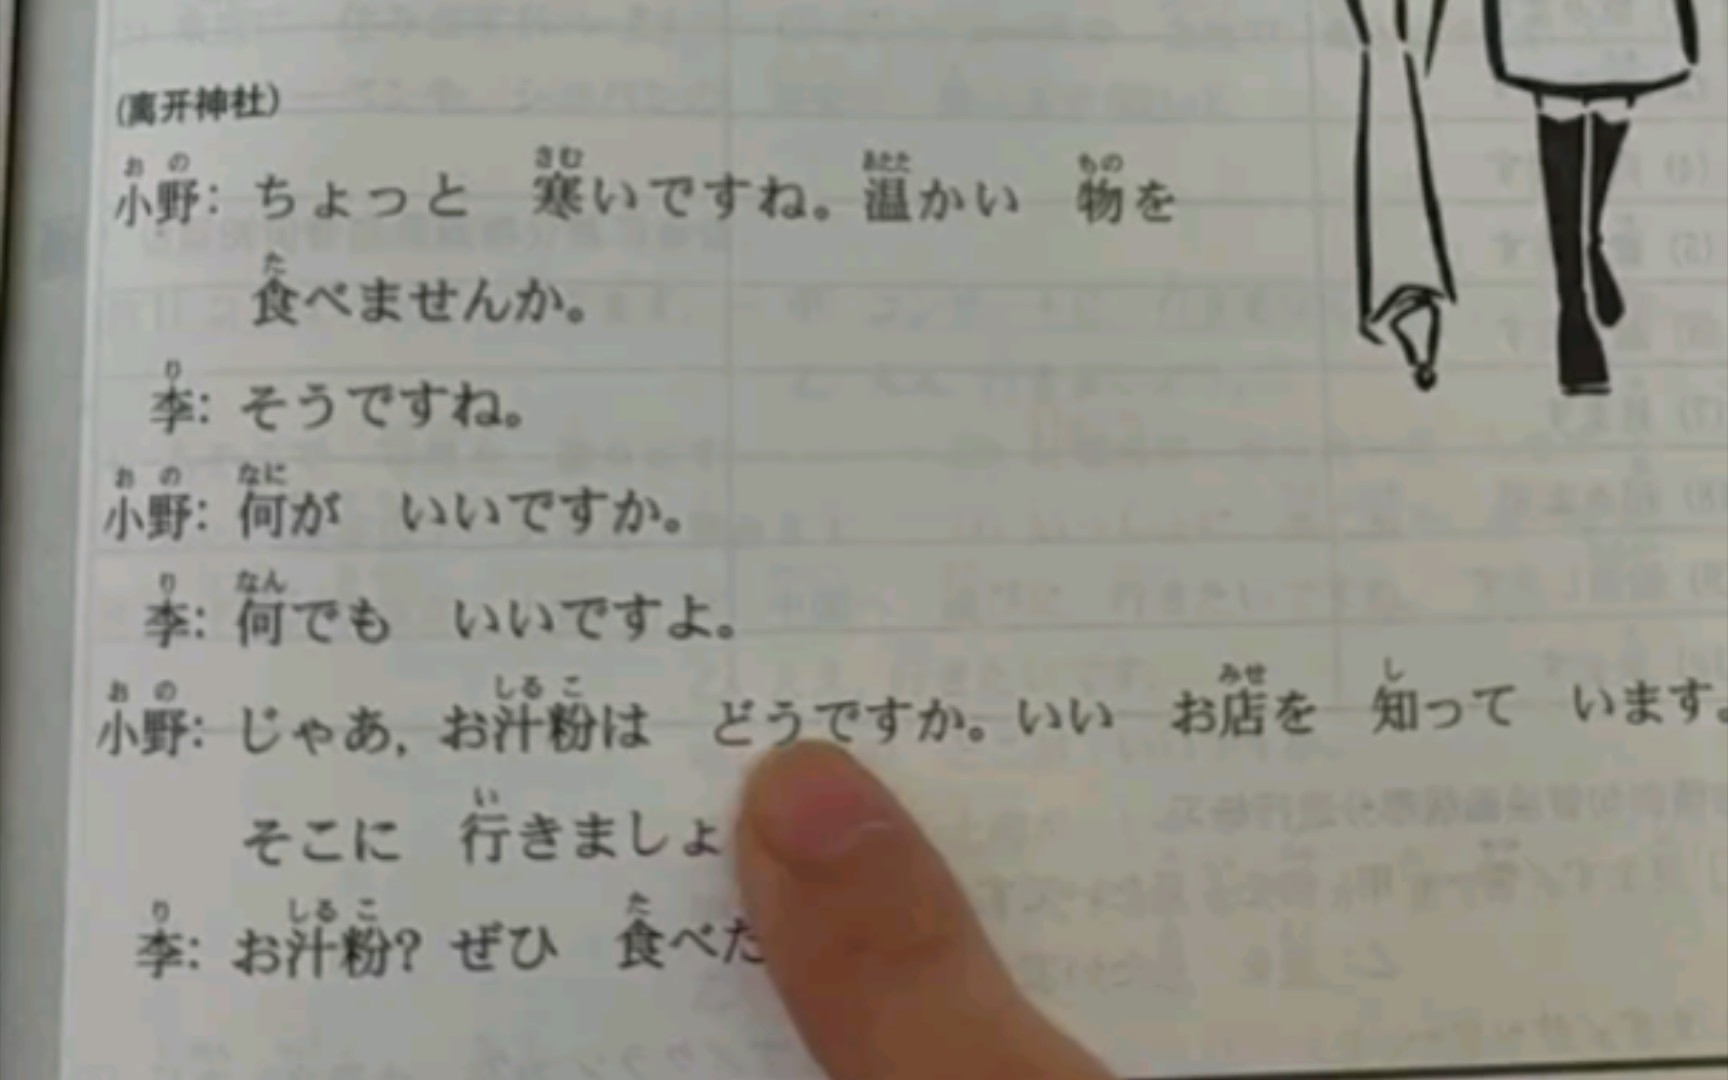 (离开神社)
小野: ちょっと 寒いですね。温かい 物を
食べませんか。
李: そうですね。
小野: 何が いいですか。
李: 何でも いいですよ。
小野: じゃあ, お汁粉は どうですか。いい お店を 知って います。
そこに 行きましょ
李: お汁粉? ぜひ 食べた